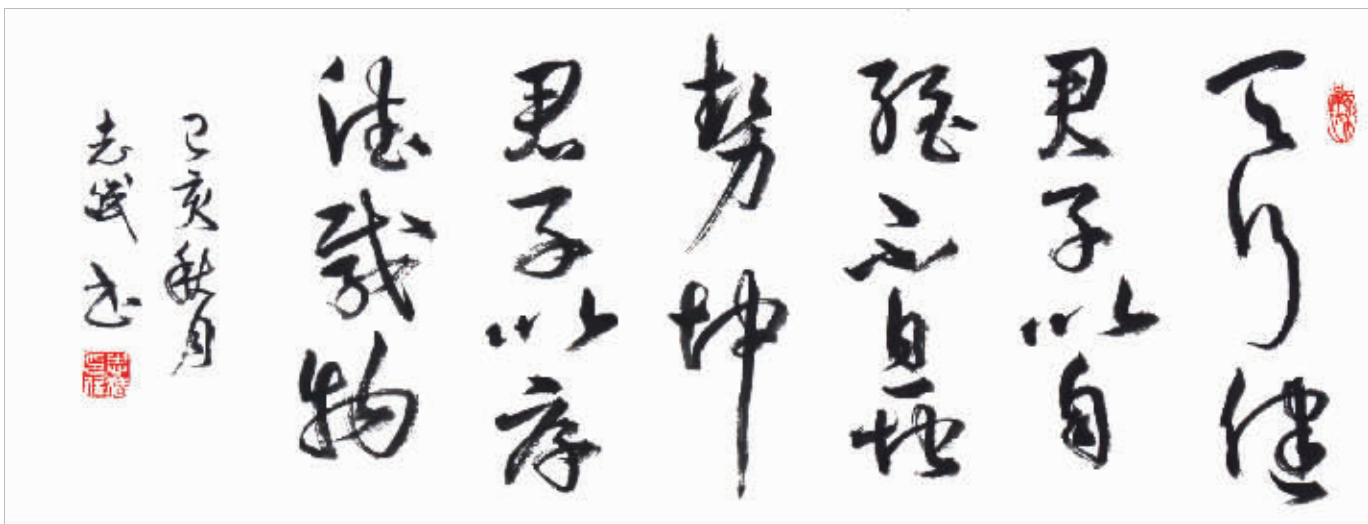 天行健
君子以自
强不息地
势坤
君子以厚
德载物
己亥秋月
志书